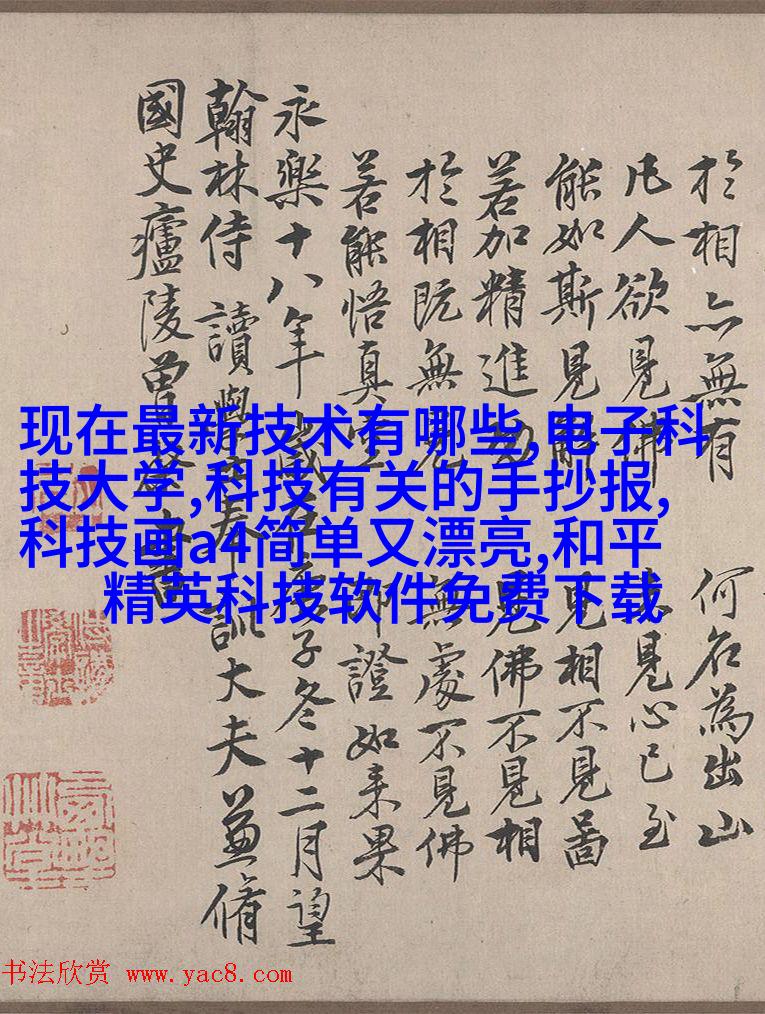 於相亦無有 何名為出山
凡人欲見佛 見心已至
能如斯見解 見相不見啚
若加精進 見佛不見相
於相既無見 無處不見佛
若能悟真空 即證如来果
永樂十八年歲在庚子冬十二月望
翰林侍讀學士奉訓大夫兼脩
國史廬陵曾棨書
现在最新技术有哪些,电子科
技大学,科技有关的手抄报,
科技画a4简单又漂亮,和平
精英科技软件免费下载
书法欣赏 www.yac8.com